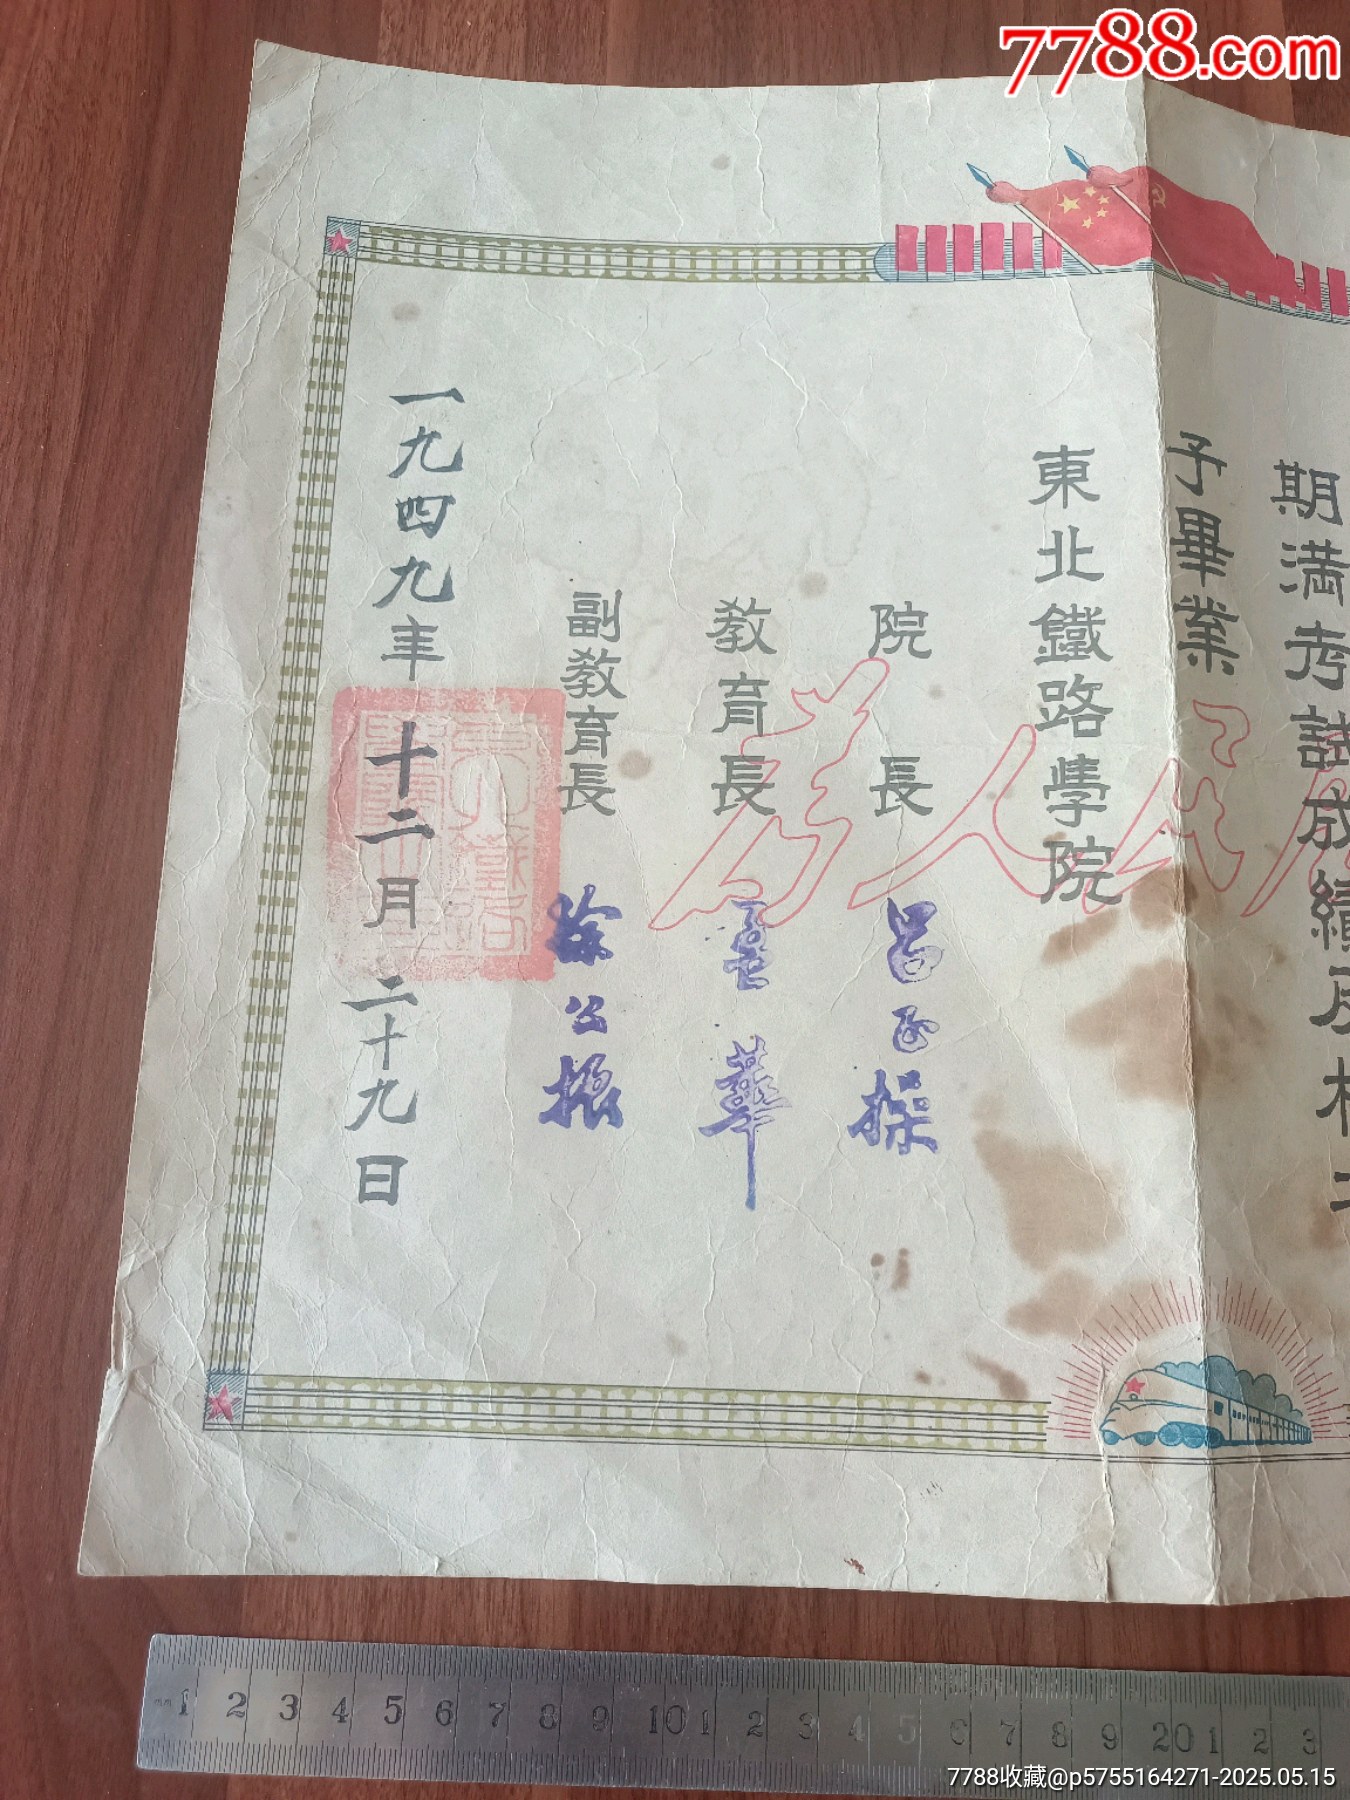 7788.com
期满考試成績及格
予畢業
為人民
東北鐵路學院
院長 呂正操
教育長 華
副教育長 徐公振
一九四九年十二月二十九日
東北鐵路
1 2 3 4 5 6 7 8 9 10 1 2 3 4 5 6 7 8 9 20 1 2 3
7788收藏@p5755164271-2025.05.15